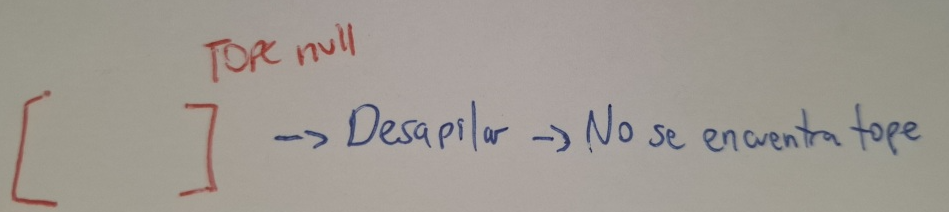 Tope null
[ ] -> Desapilar -> No se encuentra tope